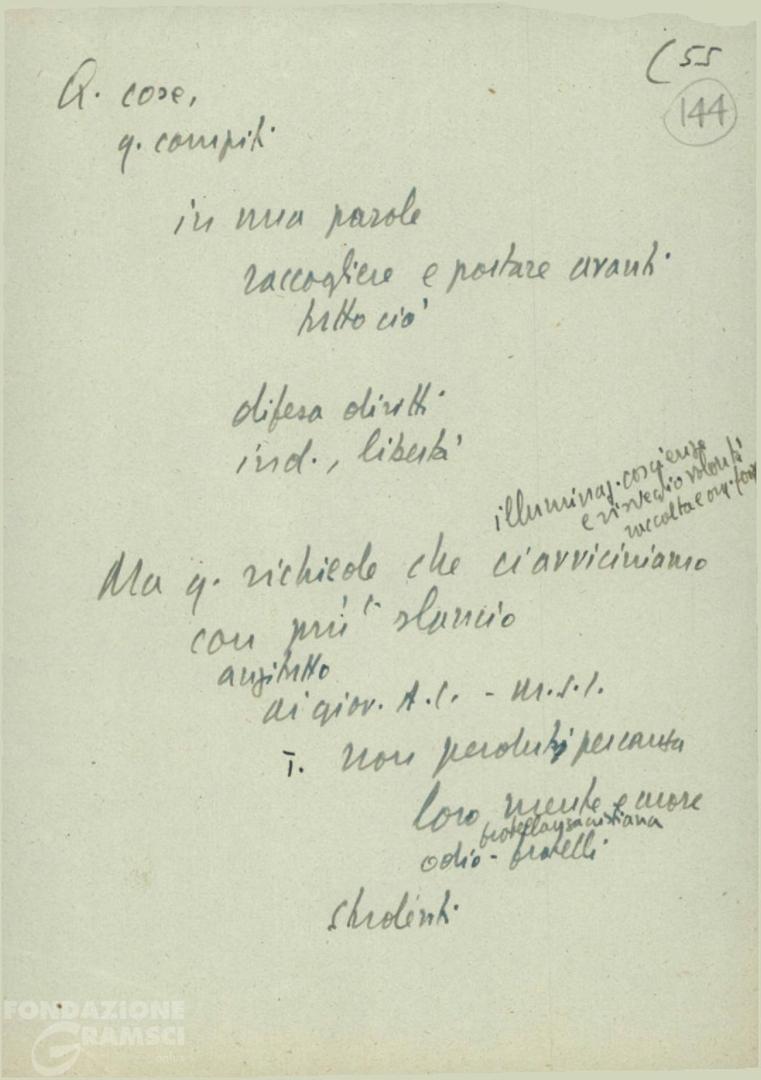 (55
144
Q. cose,
q. compiti
in una parola
raccogliere e portare avanti
tutto ciò
difesa diritti
ind., libertà
illuminaz. coscienze
e risveglio volontà
raccolta e org. forze
Ma q. richiede che ci avviciniamo
con più slancio
anzitutto
ai giov. A.C. - M.S.I.
I. non perduti per causa
loro mente e cuore
fratellanza cristiana
odio - fratelli
studenti
FONDAZIONE
GRAMSCI
onlus